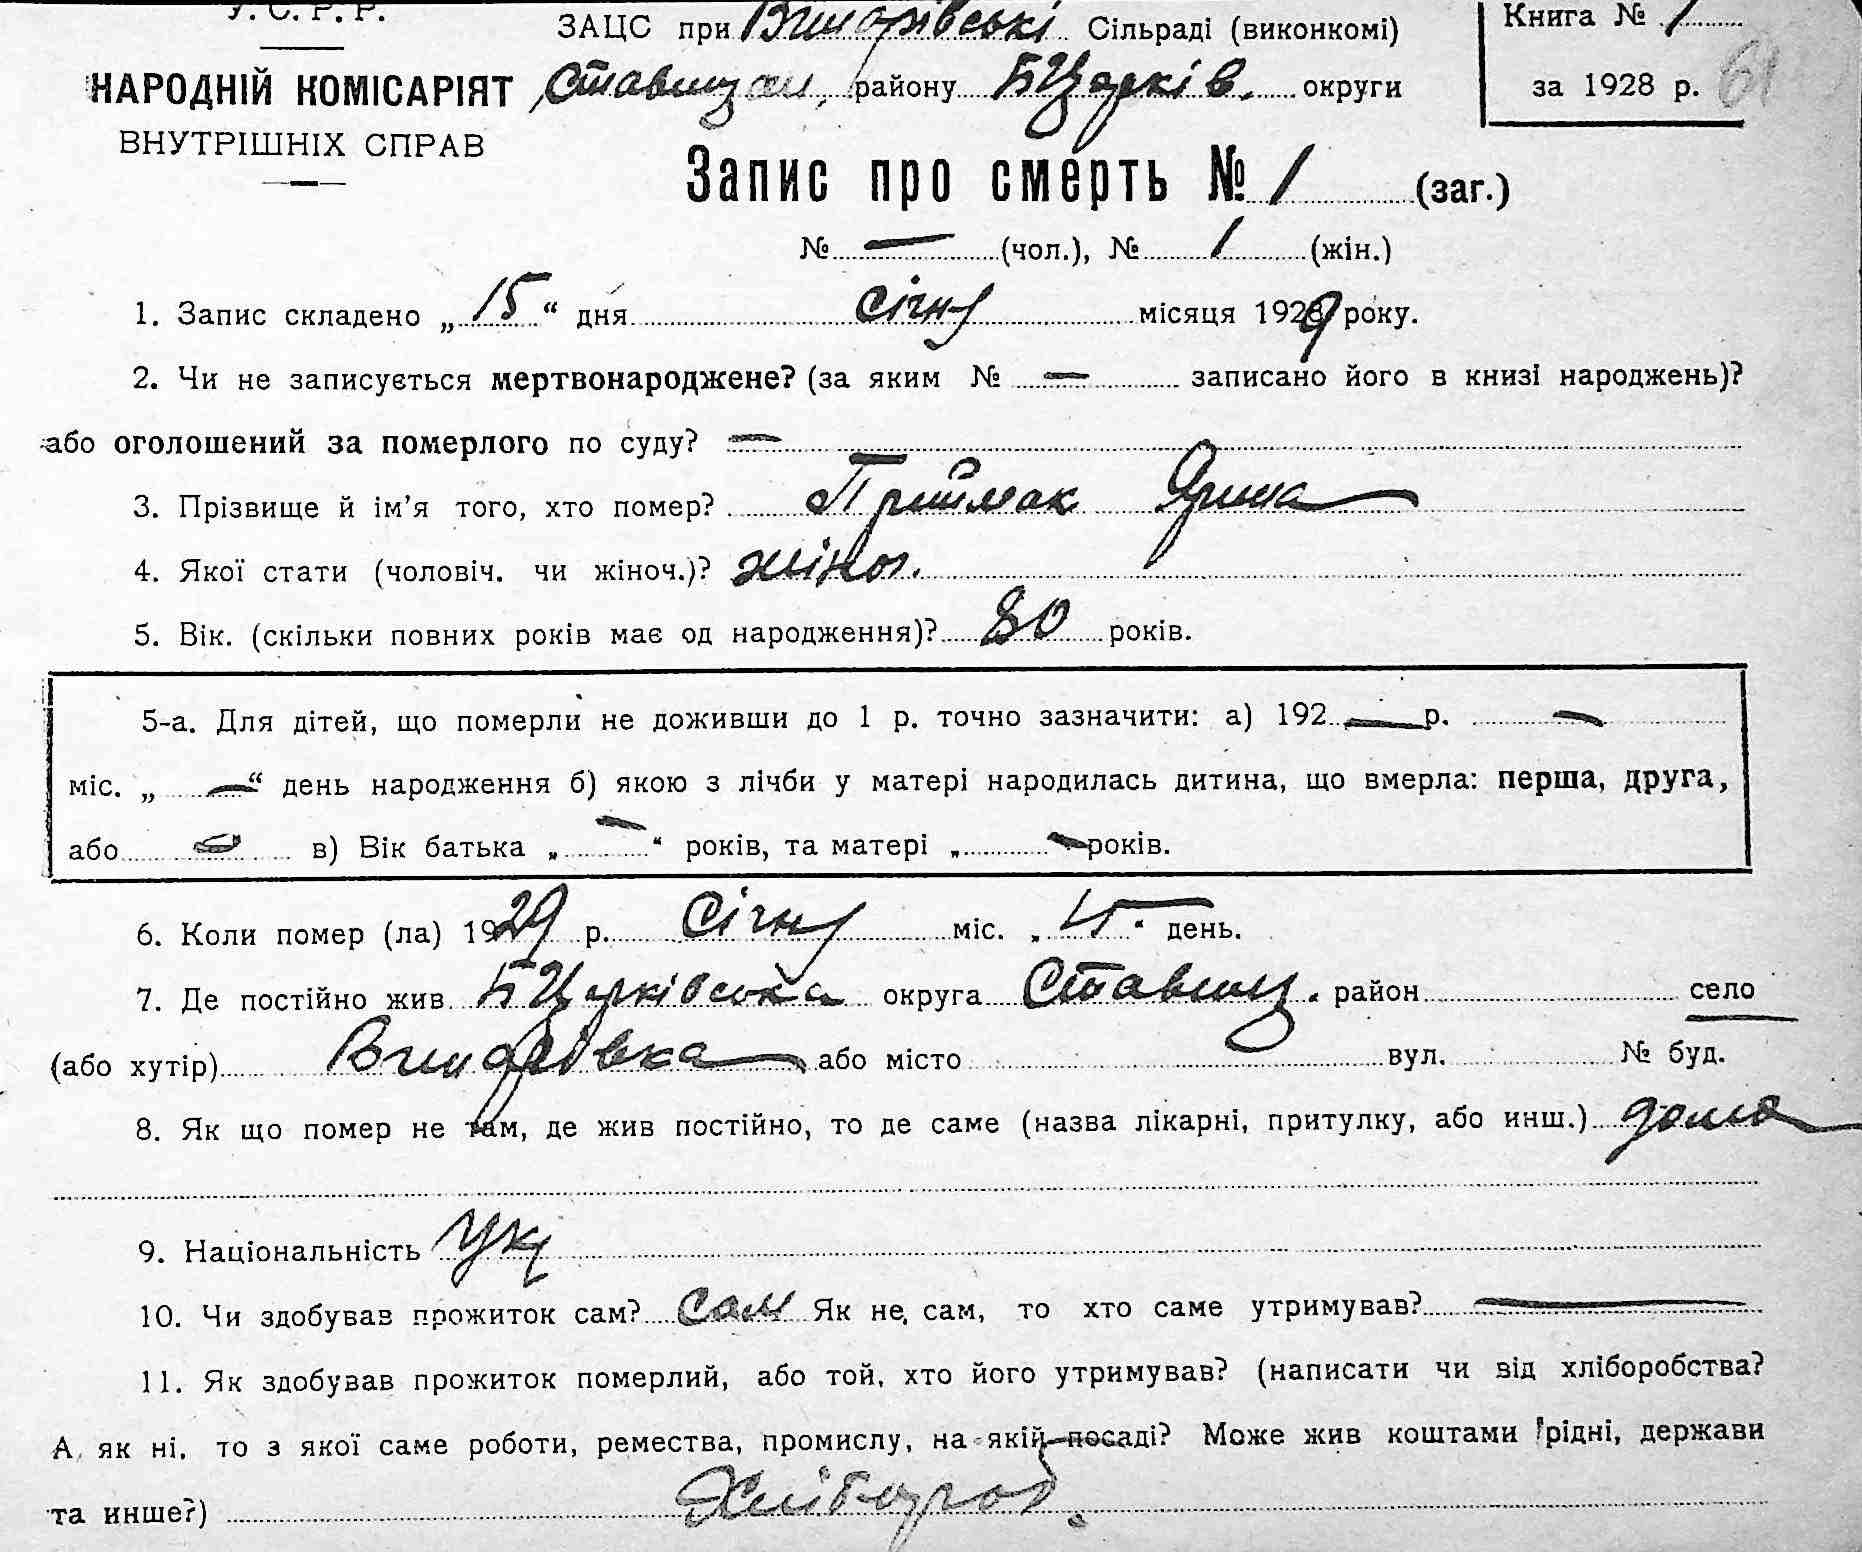 У. С. Р. Р.
ЗАЦС при Винарівські Сільраді (виконкомі)
Книга № 1
НАРОДНІЙ КОМІСАРІЯТ
Ставищан, району Б Церків. округи
за 1928 р. 61
ВНУТРІШНІХ СПРАВ
Запис про смерть № 1 (заг.)
№ — (чол.), № 1 (жін.)
1. Запис складено „15“ дня січня місяця 1929 року.
2. Чи не записується мертвонароджене? (за яким № — записано його в книзі народжень)?
або оголошений за померлого по суду? —
3. Прізвище й ім’я того, хто помер? Приймак Ярина
4. Якої стати (чоловіч. чи жіноч.)? жіноч.
5. Вік. (скільки повних років має од народження)? 80 років.
5-а. Для дітей, що померли не доживши до 1 р. точно зазначити: а) 192 — р. —
міс. „ — “ день народження б) якою з лічби у матері народилась дитина, що вмерла: перша, друга,
або — в) Вік батька „ — “ років, та матері „ — років.
6. Коли помер (ла) 1929 р. Січня міс. „ 15 “ день.
7. Де постійно жив Б Церківська округа Ставищ. район село
(або хутір) Винарівка або місто вул. № буд.
8. Як що помер не там, де жив постійно, то де саме (назва лікарні, притулку, або инш.) дома
9. Національність Укр
10. Чи здобував прожиток сам? Сам Як не сам, то хто саме утримував? —
11. Як здобував прожиток померлий, або той, хто його утримував? (написати чи від хліборобства?
А як ні, то з якої саме роботи, ремества, промислу, на якій посаді? Може жив коштами рідні, держави
та инше?) Хлібороб.